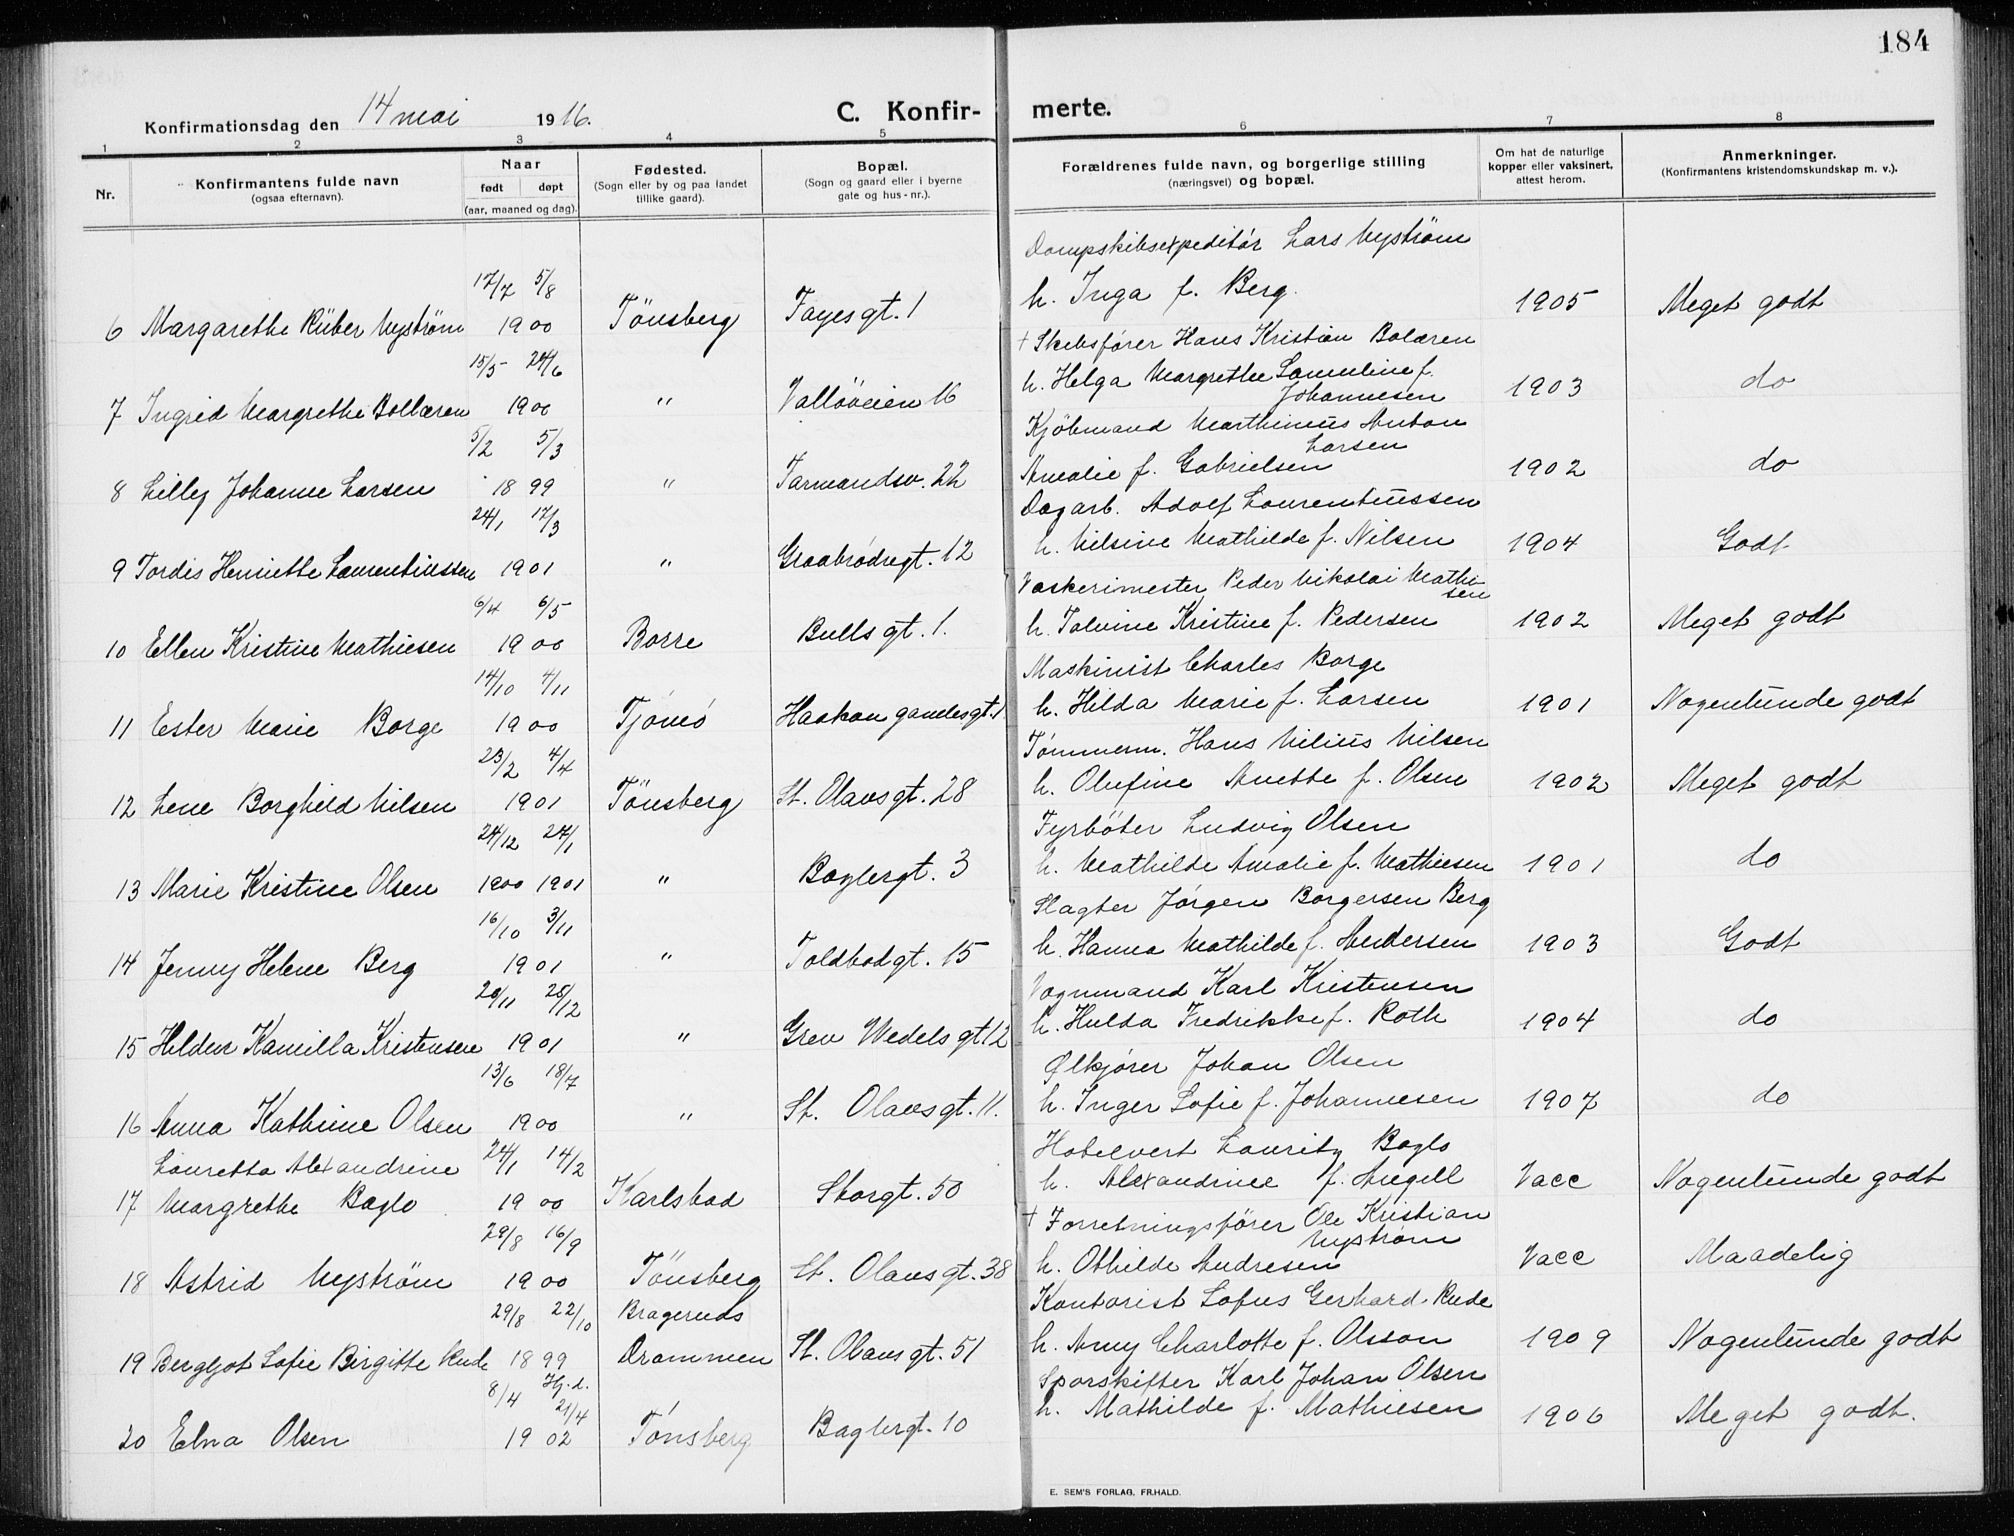 184
Konfirmationsdag den 14 mai 1916.
C. Konfir- merte.
1 2 3 4 5 6 7 8
Nr.
Konfirmantens fulde navn
(ogsaa efternavn).
Naar
født døpt
(aar, maaned og dag).
Fødested.
(Sogn eller by og paa landet
tillike gaard).
Bopæl.
(Sogn og gaard eller i byerne
gate og hus-nr.).
Forældrenes fulde navn, og borgerlige stilling
(næringsvei) og bopæl.
Om hat de naturlige
kopper eller vaksinert,
attest herom.
Anmerkninger.
(Konfirmantens kristendomskundskap m. v.).
Dampskibsexpeditör Lars Nyström
17/7 5/8
h. Inga f. Berg.
6 Margarethe Rüber Nyström 1900 Tönsberg Fayesgt. 1 1905 Meget godt
† Skibsfører Hans Kristian Bolæren
15/5 24/6
h. Helga Margrethe Samuline f.
Johannesen
7 Ingrid Margrethe Bollæren 1900 " Vallöveien 16 1903 do
Kjöbmand Marthinius Anton
Larsen
5/2 5/3
Amalie f. Gabrielsen
8 Lilly Johanne Larsen 1899 " Farmandsv. 22 1902 do
Dagarb. Adolf Laurentiussen
24/1 17/3
h. Nilsine Mathilde f. Nilsen
9 Tordis Henriette Laurentiussen 1901 " Graabrødregt. 12 1904 Godt
Vaskerimester Peder Nikolai Mathi-
sen
6/4 6/5
h. Talvine Kristine f. Pedersen
10 Ellen Kristine Mathiesen 1900 Borre Bulls gt. 1. 1902 Meget godt
Maskinist Charles Borge
14/10 4/11
h. Hilda Marie f. Larsen
11 Ester Marie Borge 1900 Tjømø Haakon gamlesgt. 1 1901 Nogenlunde godt
Tømmerm. Hans Nilius Nilsen
23/2 4/4
h. Olufine Anette f. Olsen
12 Lene Borghild Nilsen 1901 Tönsberg St. Olavsgt. 28 1902 Meget godt
Fyrbøter Ludvig Olsen
24/12 24/1
h. Mathilde Amalie f. Mathiesen
13 Marie Kristine Olsen 1900 1901 " Baglergt. 3 1901 do
Slagter Jørgen Borgersen Berg
16/10 3/11
h. Hanna Mathilde f. Andersen
14 Jenny Helene Berg 1901 " Toldbodgt. 15 1903 Godt
Vognmand Karl Kristensen
20/11 25/12
h. Hulda Fredrikke f. Roth
15 Hildur Kamilla Kristensen 1901 " Grev Wedels gt 12 1904 do
Ølkjører Johan Olsen
13/6 18/7
h. Inger Sofie f. Johannesen
16 Anna Kathrine Olsen 1900 " St. Olavsgt. 11. 1907 do
Hotelvert Lauritz Baglo
Lauretta Alexandrine 24/1 14/2
h. Alexandrine f. Angell
17 Margrethe Baglo 1900 Karlsbad Storgt. 50 Vacc Nogenlunde godt
† Forretningsfører Ole Kristian
Nystrøm
29/8 16/9
h. Othilde Andresen
18 Astrid Nystrøm 1900 Tönsberg St. Olavsgt. 38 Vacc Maadelig
Kontorist Sofus Gerhard Rude
29/8 22/10 Bragernds
h. Amy Charlotte f. Olsson
19 Bergljot Sofie Birgitte Rude 1899 Drammen St. Olavsgt. 51 1909 Nogenlunde godt
Sporskifter Karl Johan Olsen
8/4 Hj. d. 21/4
h. Mathilde f. Mathiesen
20 Elna Olsen 1902 Tønsberg Baglergt. 10 1906 Meget godt.
E. SEM'S FORLAG, FR.HALD.